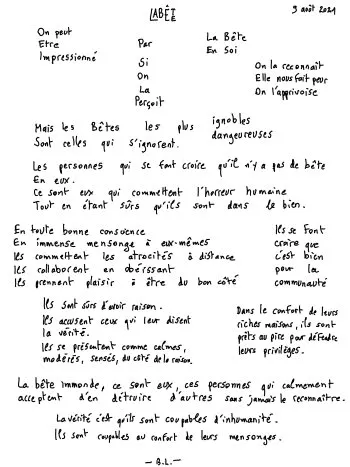 LABÊT
9 août 2021
On peut
Etre
Impressionné
Par
La Bête
En Soi
Si
On
La
Perçoit
On la reconnaît
Elle nous fait peur
On l'apprivoise
Mais les Bêtes les plus ignobles
dangeureuses
Sont celles qui s'ignorent.
Les personnes qui se font croire qu'il n'y a pas de bête
En eux.
Ce sont eux qui commettent l'horreur humaine
Tout en étant sûrs qu'ils sont dans le bien.
En toute bonne conscience
En immense mensonge à eux-mêmes
Ils commettent les atrocités à distance
Ils collaborent en obéissant
Ils prennent plaisir à être du bon côté
Ils se Font
croire que
c'est bien
pour la
communauté
Ils sont sûrs d'avoir raison.
Ils accusent ceux qui leur disent
la vérité.
Ils se présentent comme calmes,
modérés, sensés, du côté de la raison.
Dans le confort de leurs
riches maisons, ils sont
prêts au pire pour défendre
leurs privilèges.
La bête immonde, ce sont eux, ces personnes qui calmement
acceptent d'en détruire d'autres sans jamais le reconnaître.
La vérité c'est qu'ils sont coupables d'inhumanité.
Ils sont coupables au confort de leurs mensonges.
— B.L.—